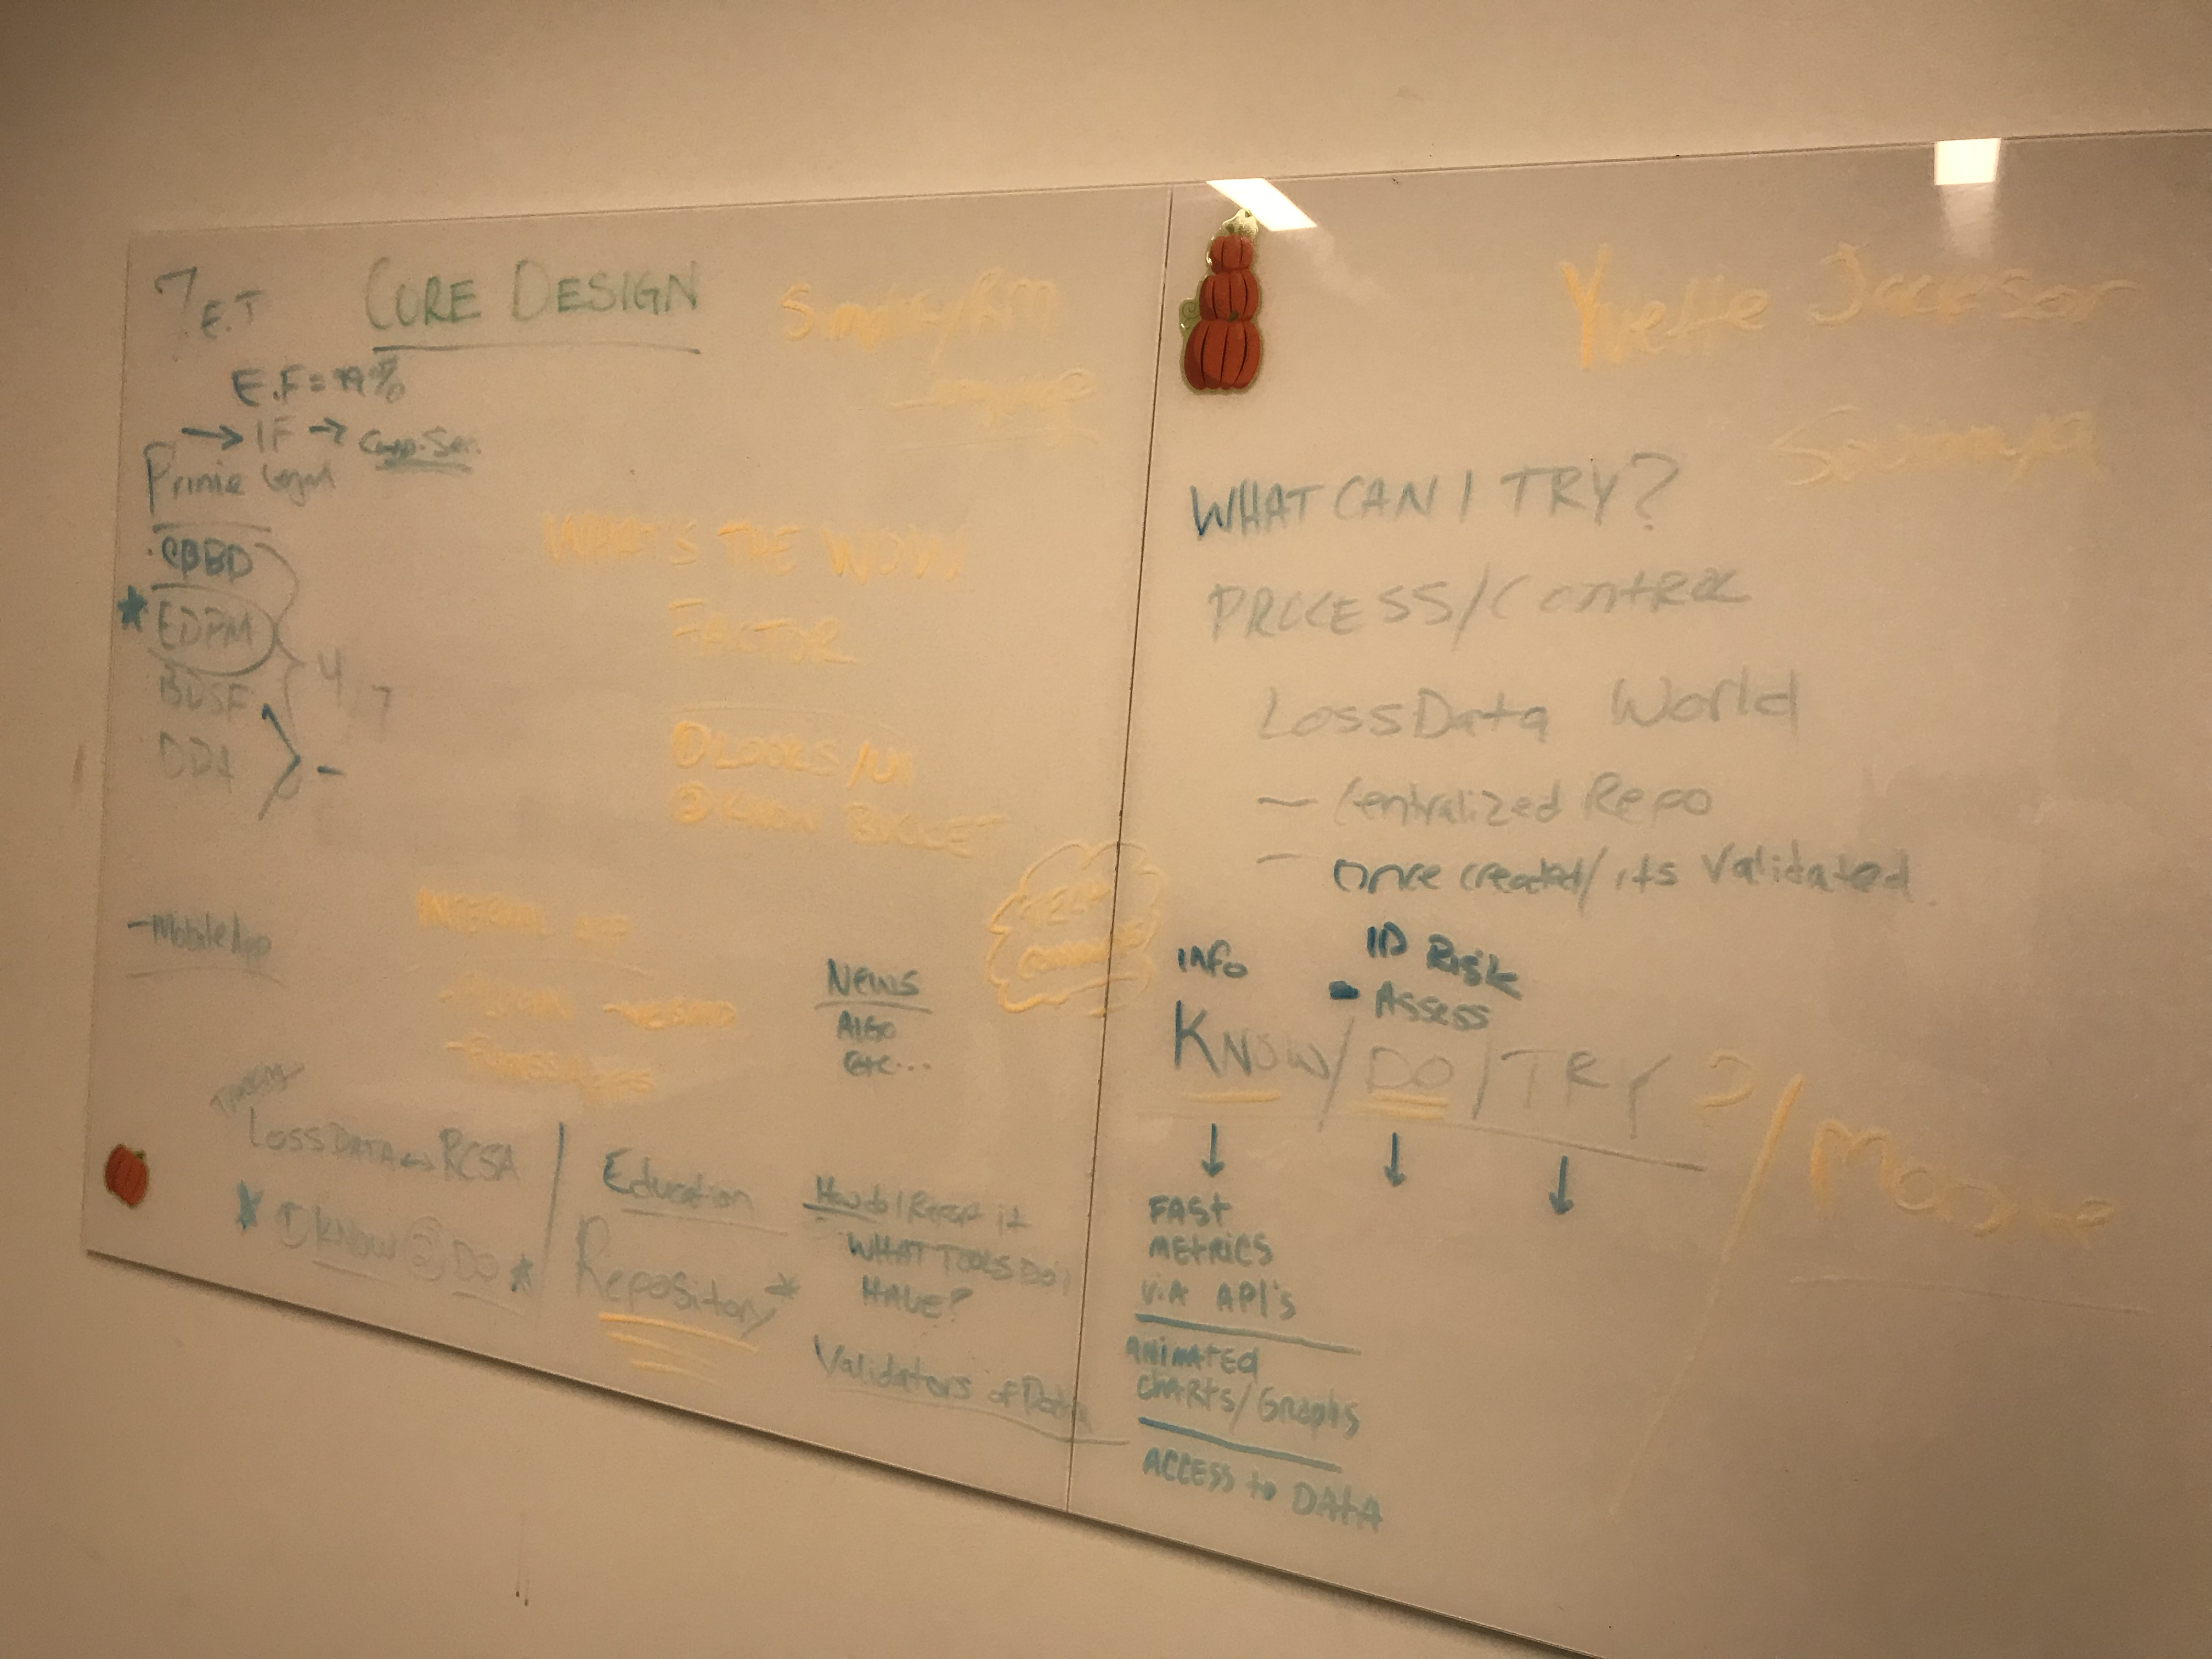 7 E.T
CORE DESIGN
E.F = 99%
→ IF → Corp. Sec.
CBBD
EDPM
BDSF
DPA
4/7
WHAT'S THE WOW
FACTOR
① LOOKS/UI
②
- Mobile App
INTERNAL APP
News
Algo
etc...
LOSS DATA ↔ RCSA
① KNOW ② DO
Education
Repository
How do I Report it
WHAT TOOLS DO I
HAVE?
Validators of Data
Yvette Jackson
Soumya
WHAT CAN I TRY?
PROCESS/Control
Loss Data World
- Centralized Repo
- Once created/its Validated
Info
ID Risk
- Assess
KNOW/DO/TRY?/Mobile
FAST
METRICS
ViA API's
ANIMATED
CHARTS/Graphs
ACCESS to DATA